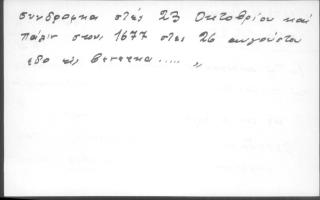 συνδρομκα στές 23 Οκτοβρίου καί
πάλιν στους 1677 στές 26 αυγούστου
εδο εἰς Βενετκα ..... „